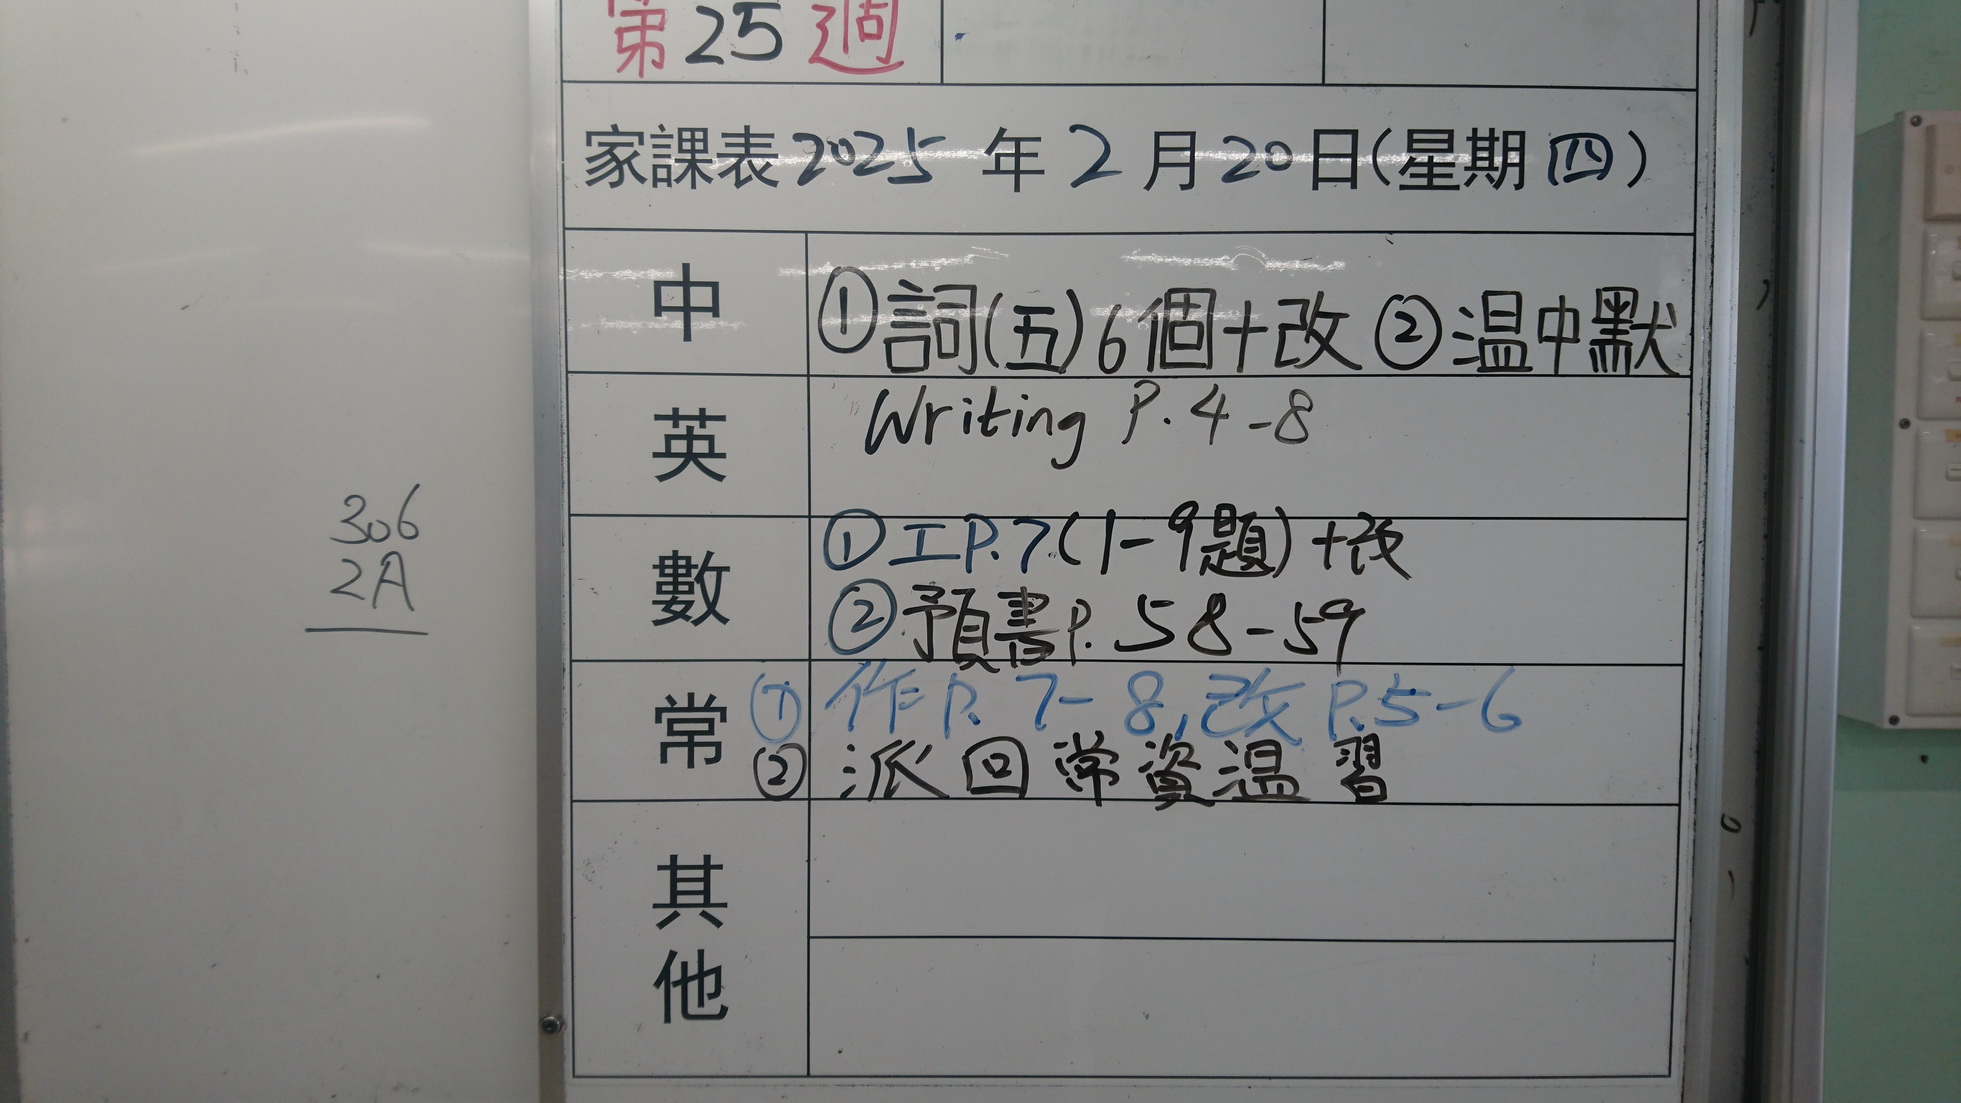 第25週
家課表2025年2月20日(星期四)
中
①詞(五)6個+改 ②温中默
英
Writing P.4-8
數
①工P.7(1-9題)+改
②預書P.58-59
常
①作P.7-8,改P.5-6
②派回常資温習
其他
306
2A